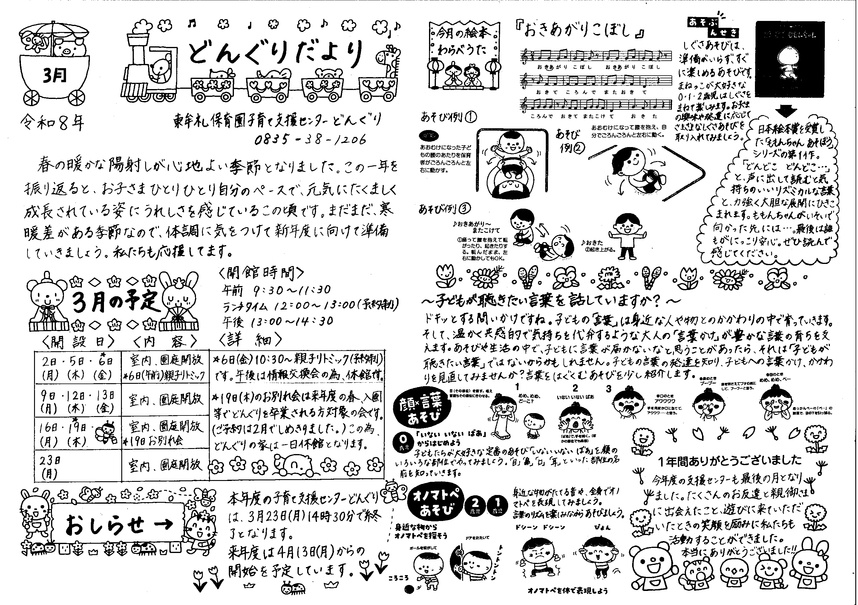 3月
どんぐりだより
令和8年
東牟礼保育園子育て支援センターどんぐり
0835-38-1206
春の暖かな陽射しが心地よい季節となりました。この一年を
振り返ると、お子さまひとりひとり自分のペースで、元気にたくましく
成長されている姿にうれしさを感じているこの頃です。まだまだ、寒
暖差がある季節なので、体調に気をつけて新年度に向けて準備
していきましょう。私たちも応援してます。
3月の予定
〈開館時間〉
午前 9:30～11:30
ランチタイム 12:00～13:00(予約制)
午後 13:00～14:30
〈開設日〉 〈内容〉 〈詳細〉
2日・5日・6日
(月)(木)(金)
室内、園庭開放
*6日(午前)親子リトミック
*6日(金)10:30～親子リトミック(予約制)
です。午後は情報交換会の為、休館です。
9日・12日・13日
(月)(木)(金)
室内、園庭開放
16日・19日
(月)(木)
室内、園庭開放
*19日お別れ会
*19日(木)のお別れ会は来年度の春、入園
等でどんぐりを卒業される方対象の会です。
(ご予約は2月でしめきりました。)この為、
どんぐりの家は一日休館となります。
23日
(月)
室内、園庭開放
おしらせ→
本年度の子育て支援センターどんぐり
は、3月23日(月)14時30分で終
了となります。
来年度は4月13日(月)からの
開始を予定しています。
今月の絵本
わらべうた
『おきあがりこぼし』
おきあがり こぼし おきあがり こぼし
おきて ころんで またおきて
ころんで またこけて おきた
あそび例①
おあおむけになった子ど
もの腰のあたりを保育
者がごろんごろんと左
右に動かす。
あそび
例②
あおむけになって膝を抱え、自
分でごろんごろんと左右に動く。
あそび例③
♪おきあがり～
またこけて
①座って膝を抱えて転
がったり、起きたりす
る。転んだまま、左
右に動かしてもOK。
♪おきた
②起き上がる。
あそぶ
んせき
しぐさあそびは、
準備がいらず、すぐ
に楽しめるあそびです。
まねっこが大好きな
0・1・2歳児はしぐさを
まねて楽しみます。お子さま
の興味や発達に応じて
さまざまなしぐさあそびを
取り入れてみましょう。
日本絵本賞を受賞し
た「ももんちゃん あそぼう」
シリーズの第1作。
「どんどこ どんどこ…」
と、声に出して読むと気
持ちのいいリズミカルな言葉
と、力強く大胆な展開にひきこ
まれます。ももんちゃんがいそいで
向かった先には…。最後は誰
もがにっこり安心。ぜひ読んで
感じてください。
～子どもが聴きたい言葉を話していますか？～
ドキッとする問いかけですね。子どもの「言葉」は身近な人や物とのかかわりの中で育っていきます。
そして、温かく共感的で気持ちを代弁するような大人の「言葉かけ」が豊かな言葉の育ちを支
えます。あそびや生活の中で、子どもに言葉が届かないなと思うことがあったら、それは「子どもが
聴きたい言葉」ではないからかもしれません。子どもの言葉の発達を知り、子どもへの言葉かけ、かかわ
りを見直してみませんか？言葉をはぐくむあそびを少し紹介します。
顔・言葉
あそび
0歳児
「いない いない ばあ」
からはじめよう
子どもたちが大好きな定番のあそび「いないいないばあ」を顔の
いろいろな部位でやってみましょう。「目」「鼻」「口」「耳」といった部位の名
前も知っていきます。
1
2
3
いない いない ばあ
オノマトペ
あそび
2歳児
1歳児
身近な物から
オノマトペを探そう
ころころ
トントントン
身近な物がたてる音や、全身でオノ
マトペを表現してみましょう。
言葉のリズムを楽しみながらあそびましょう。
ドシーン ドシーン
ぴょん
オノマトペを体で表現しよう
1年間ありがとうございました
今年度の支援センターも最後の月となり
ました。たくさんのお友達と親御さん
に出会えたこと、遊びに来ていた
だいたときの笑顔を励みに私たちも
活動することができました。
本当にありがとうございました!!